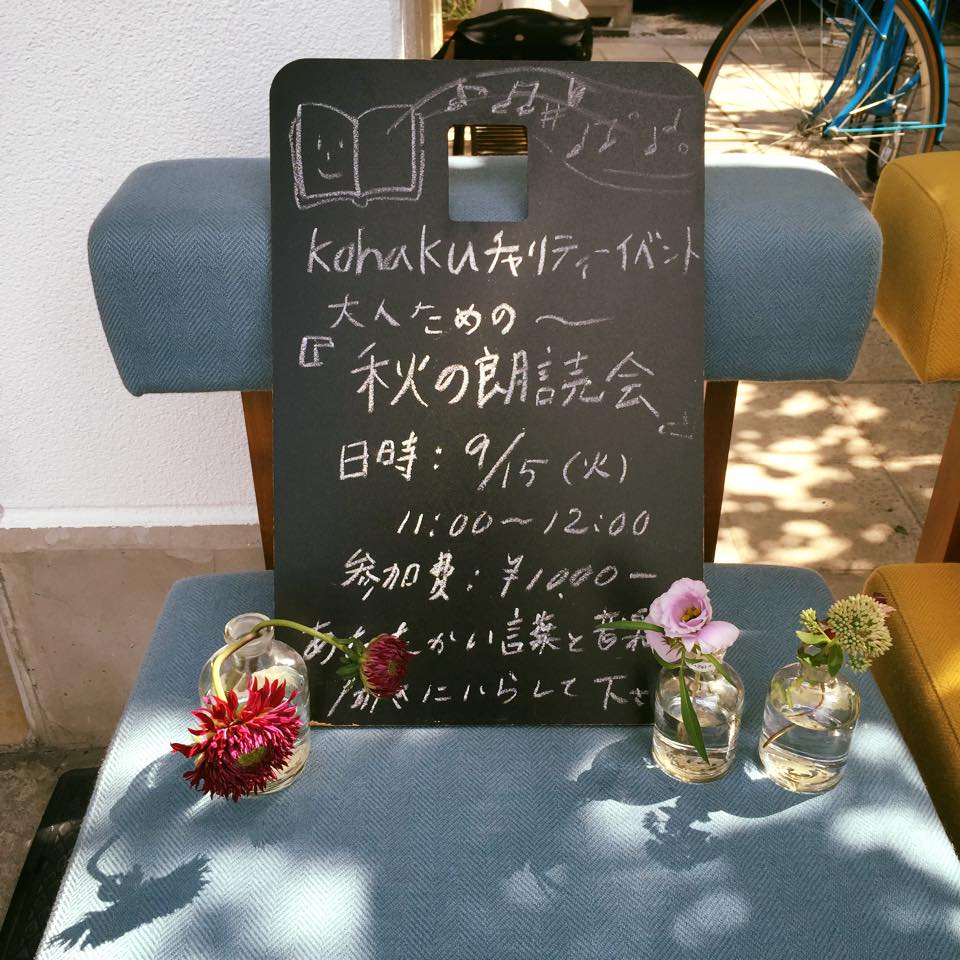 kohakuチャリティーイベント
大人ための〜
『秋の朗読会』
日時：9/15（火）
11:00〜12:00
参加費：¥1000−
かい言葉と音
きにいらして下さ